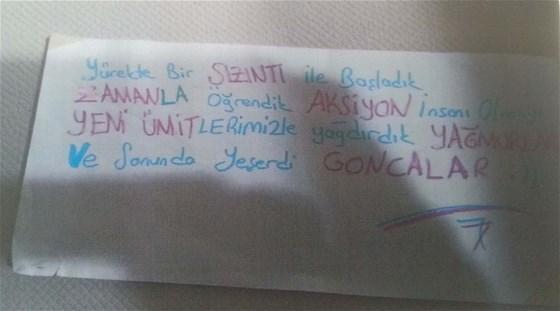 Yürekte Bir SIZINTI ile Başladık
ZAMANLA Öğrendik AKSİYON İnsanı Olmayı
YENİ ÜMİTLERİMİZle yağdırdık YAĞMURLAR
Ve Sonunda Yeşerdi GONCALAR :))